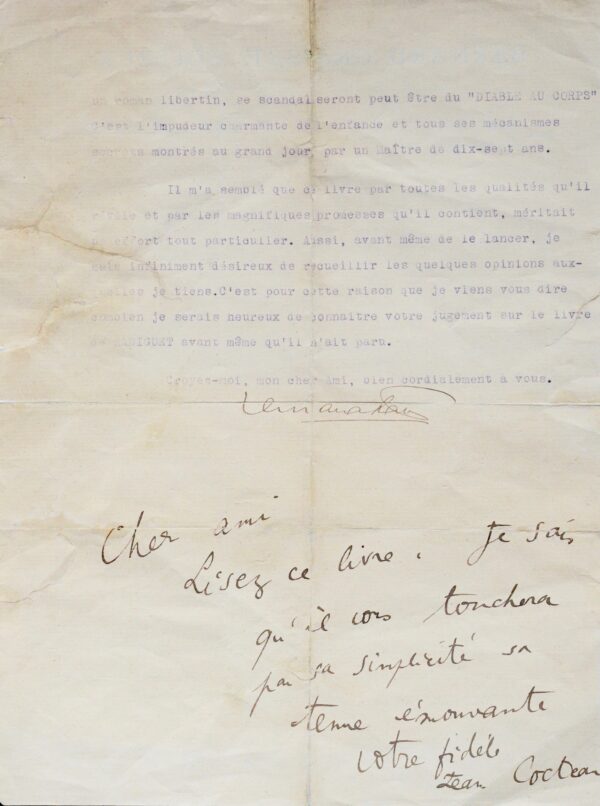 un roman libertin, se scandaliseront peut être du "DIABLE AU CORPS"
C'est l'impudeur charmante de l'enfance et tous ses mécanismes
secrets montrés au grand jour, par un Maître de dix-sept ans.
Il m'a semblé que ce livre par toutes les qualités qu'il
révèle et par les magnifiques promesses qu'il contient, méritait
un effort tout particulier. Aussi, avant même de le lancer, je
suis infiniment désireux de recueillir les quelques opinions aux-
quelles je tiens.C'est pour cette raison que je viens vous dire
combien je serais heureux de connaître votre jugement sur le livre
de RADIGUET avant même qu'il n'ait paru.
Croyez-moi, mon cher Ami, bien cordialement à vous.
Cher ami
Lisez ce livre. Je sais
qu'il vous touchera
par sa simplicité sa
tenue émouvante
votre fidèle
Jean Cocteau